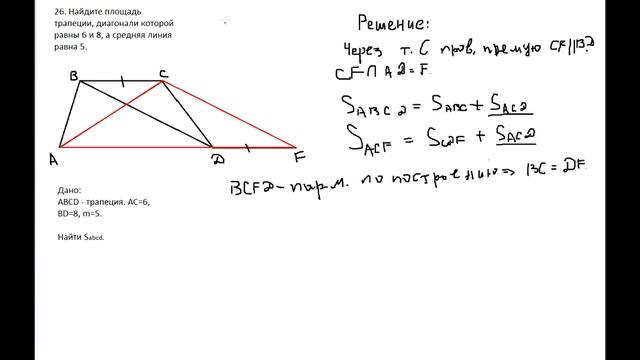 26. Найдите площадь
трапеции, диагонали которой
равны 6 и 8, а средняя линия
равна 5.
B
C
A
D
F
Дано:
ABCD - трапеция. AC=6,
BD=8, m=5.
Найти Sabcd.
Решение:
Через т. C пров. прямую CF||BD
CF∩AD=F.
SABCD = SABC + SACD
SACF = SCDF + SACD
BCFD - парм. по построению => BC = DF